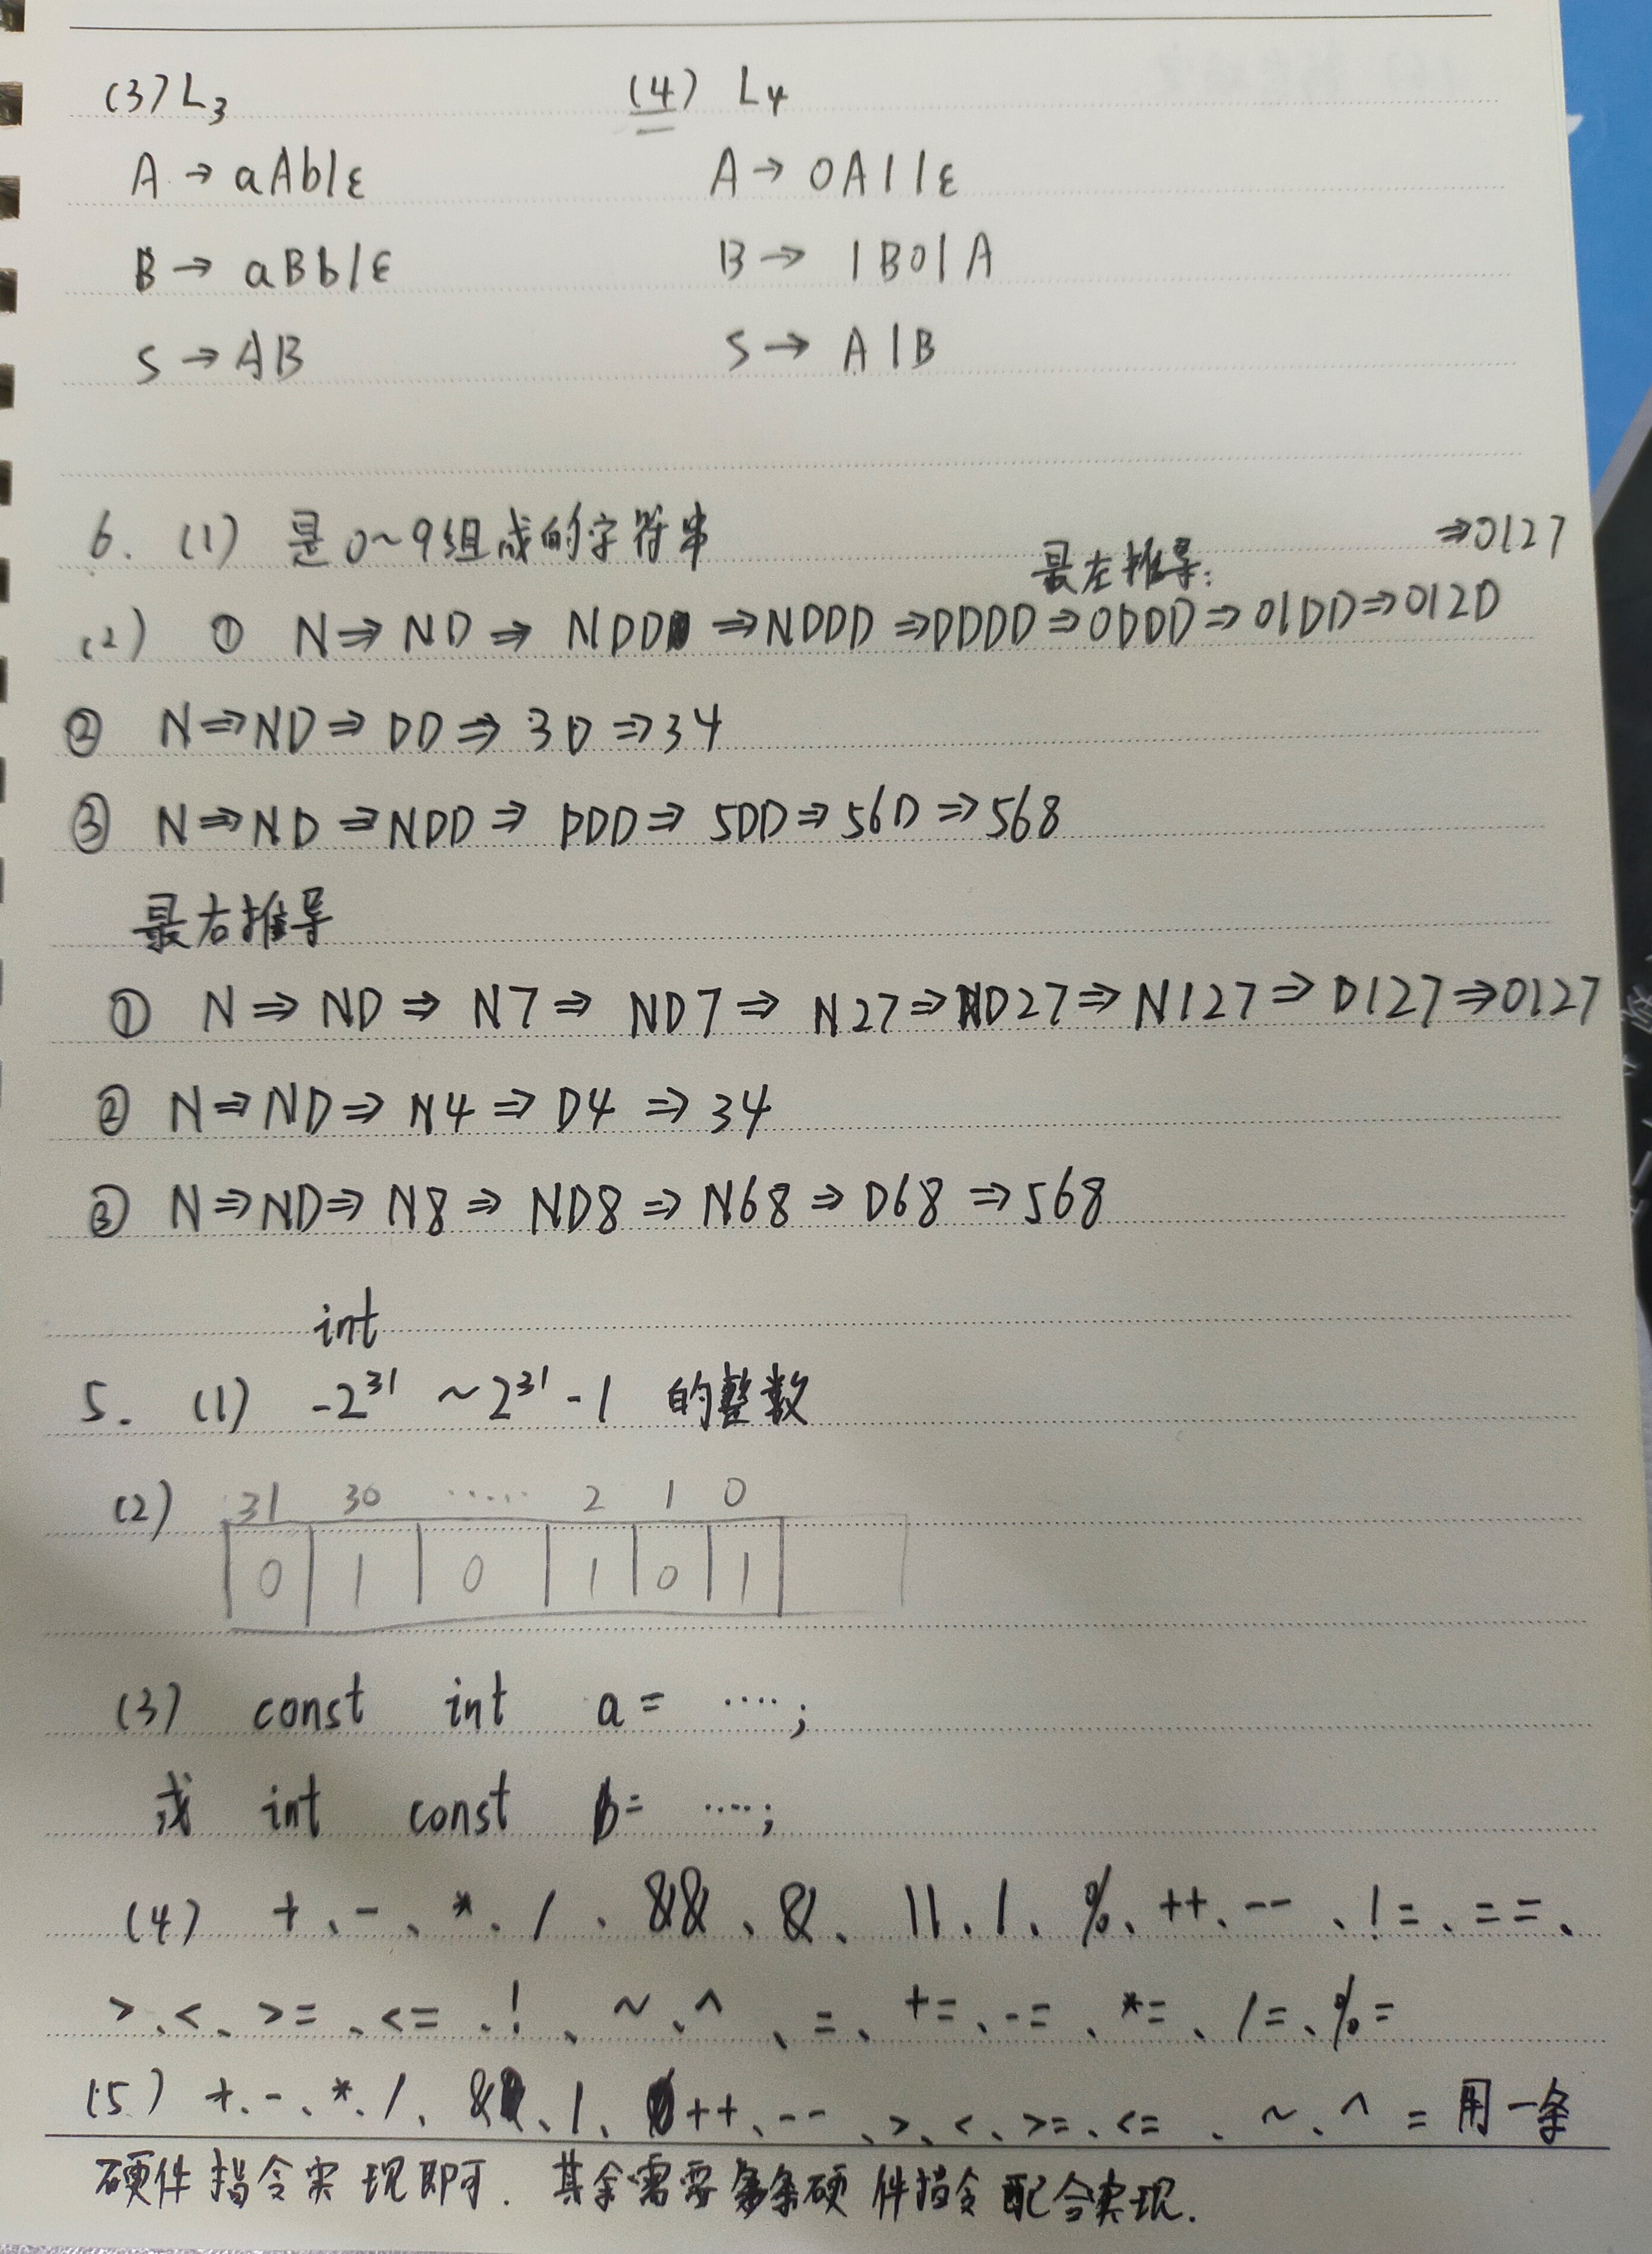 (3) L₃ (4) L₄
A → aAb|ε A → 0A1|ε
B → aBb|ε B → 1B0|A
S → AB S → A|B
6. (1) 是0~9组成的字符串
最左推导: ⇒0127
(2) ① N ⇒ ND ⇒ NDD ⇒ NDDD ⇒ DDDD ⇒ 0DDD ⇒ 01DD ⇒ 012D
② N ⇒ ND ⇒ DD ⇒ 3D ⇒ 34
③ N ⇒ ND ⇒ NDD ⇒ DDD ⇒ 5DD ⇒ 56D ⇒ 568
最右推导
① N ⇒ ND ⇒ N7 ⇒ ND7 ⇒ N27 ⇒ ND27 ⇒ N127 ⇒ D127 ⇒ 0127
② N ⇒ ND ⇒ N4 ⇒ D4 ⇒ 34
③ N ⇒ ND ⇒ N8 ⇒ ND8 ⇒ N68 ⇒ D68 ⇒ 568
int
5. (1) -2³¹ ~ 2³¹-1 的整数
(2) 31 30 ····· 2 1 0
0 1 0 1 0 1
(3) const int a = ····;
或 int const b = ····;
(4) +、-、*、/、&&、&、||、|、%、++、--、!=、==、
>、<、>=、<=、!、~、^、=、+=、-=、*=、/=、%=
(5) +、-、*、/、&、|、++、--、>、<、>=、<=、~、^ = 用一条
硬件指令实现即可. 其余需要多条硬件指令配合实现.